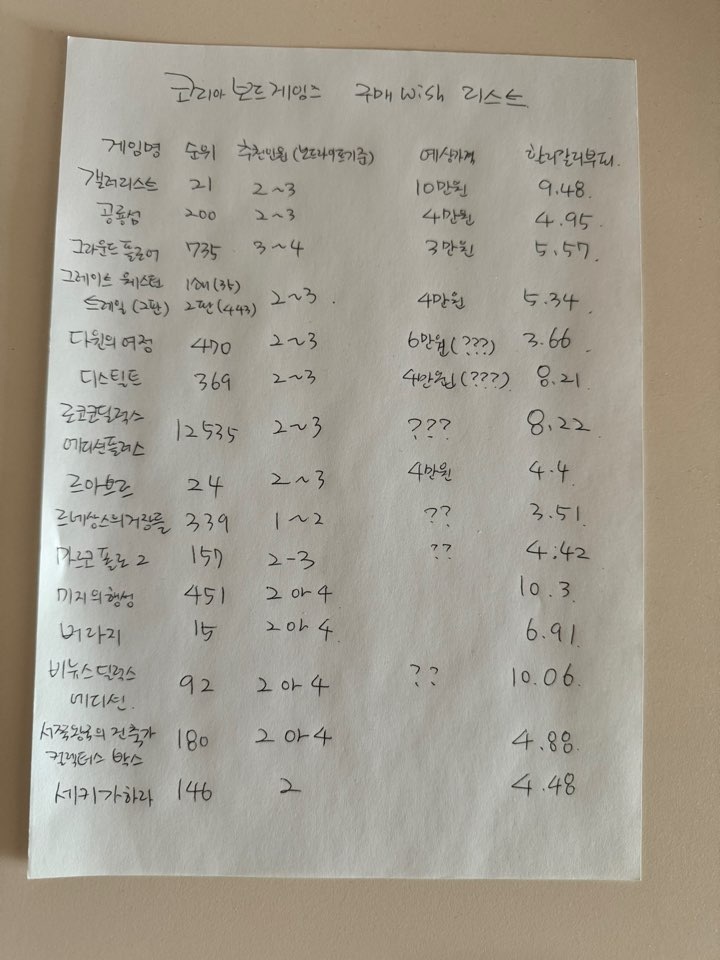 코리아 보드게임즈 구매 wish 리스트
게임명 순위 추천인원 (보드라이프기준) 예상가격 할리갈리부피.
갤러리스트 21 2~3 10만원 9.48.
공룡섬 200 2~3 4만원 4.95.
그라운드 플로어 735 3~4 3만원 5.57.
그레이트 웨스턴 1쇄(35)
트레일 (2판) 2판(443) 2~3. 4만원 5.34.
다윈의 여정 470 2~3 6만원(???) 3.66
디스틸드 369 2~3 4만원(???) 8.21
로코코딜럭스
에디션플러스 12535 2~3 ??? 8.22
르아브르 24 2~3 4만원 4.4
르네상스의거장들 339 1~2 ?? 3.51
마르코 폴로 2 157 2-3 ?? 4.42
미지의행성 451 2 or 4 10.3
버라지 15 2 or 4 6.91
비뉴스딜럭스
에디션. 92 2 or 4 ?? 10.06
서쪽왕국의 건축가
컬렉터스 박스 180 2 or 4 4.88
세키가하라 146 2 4.48